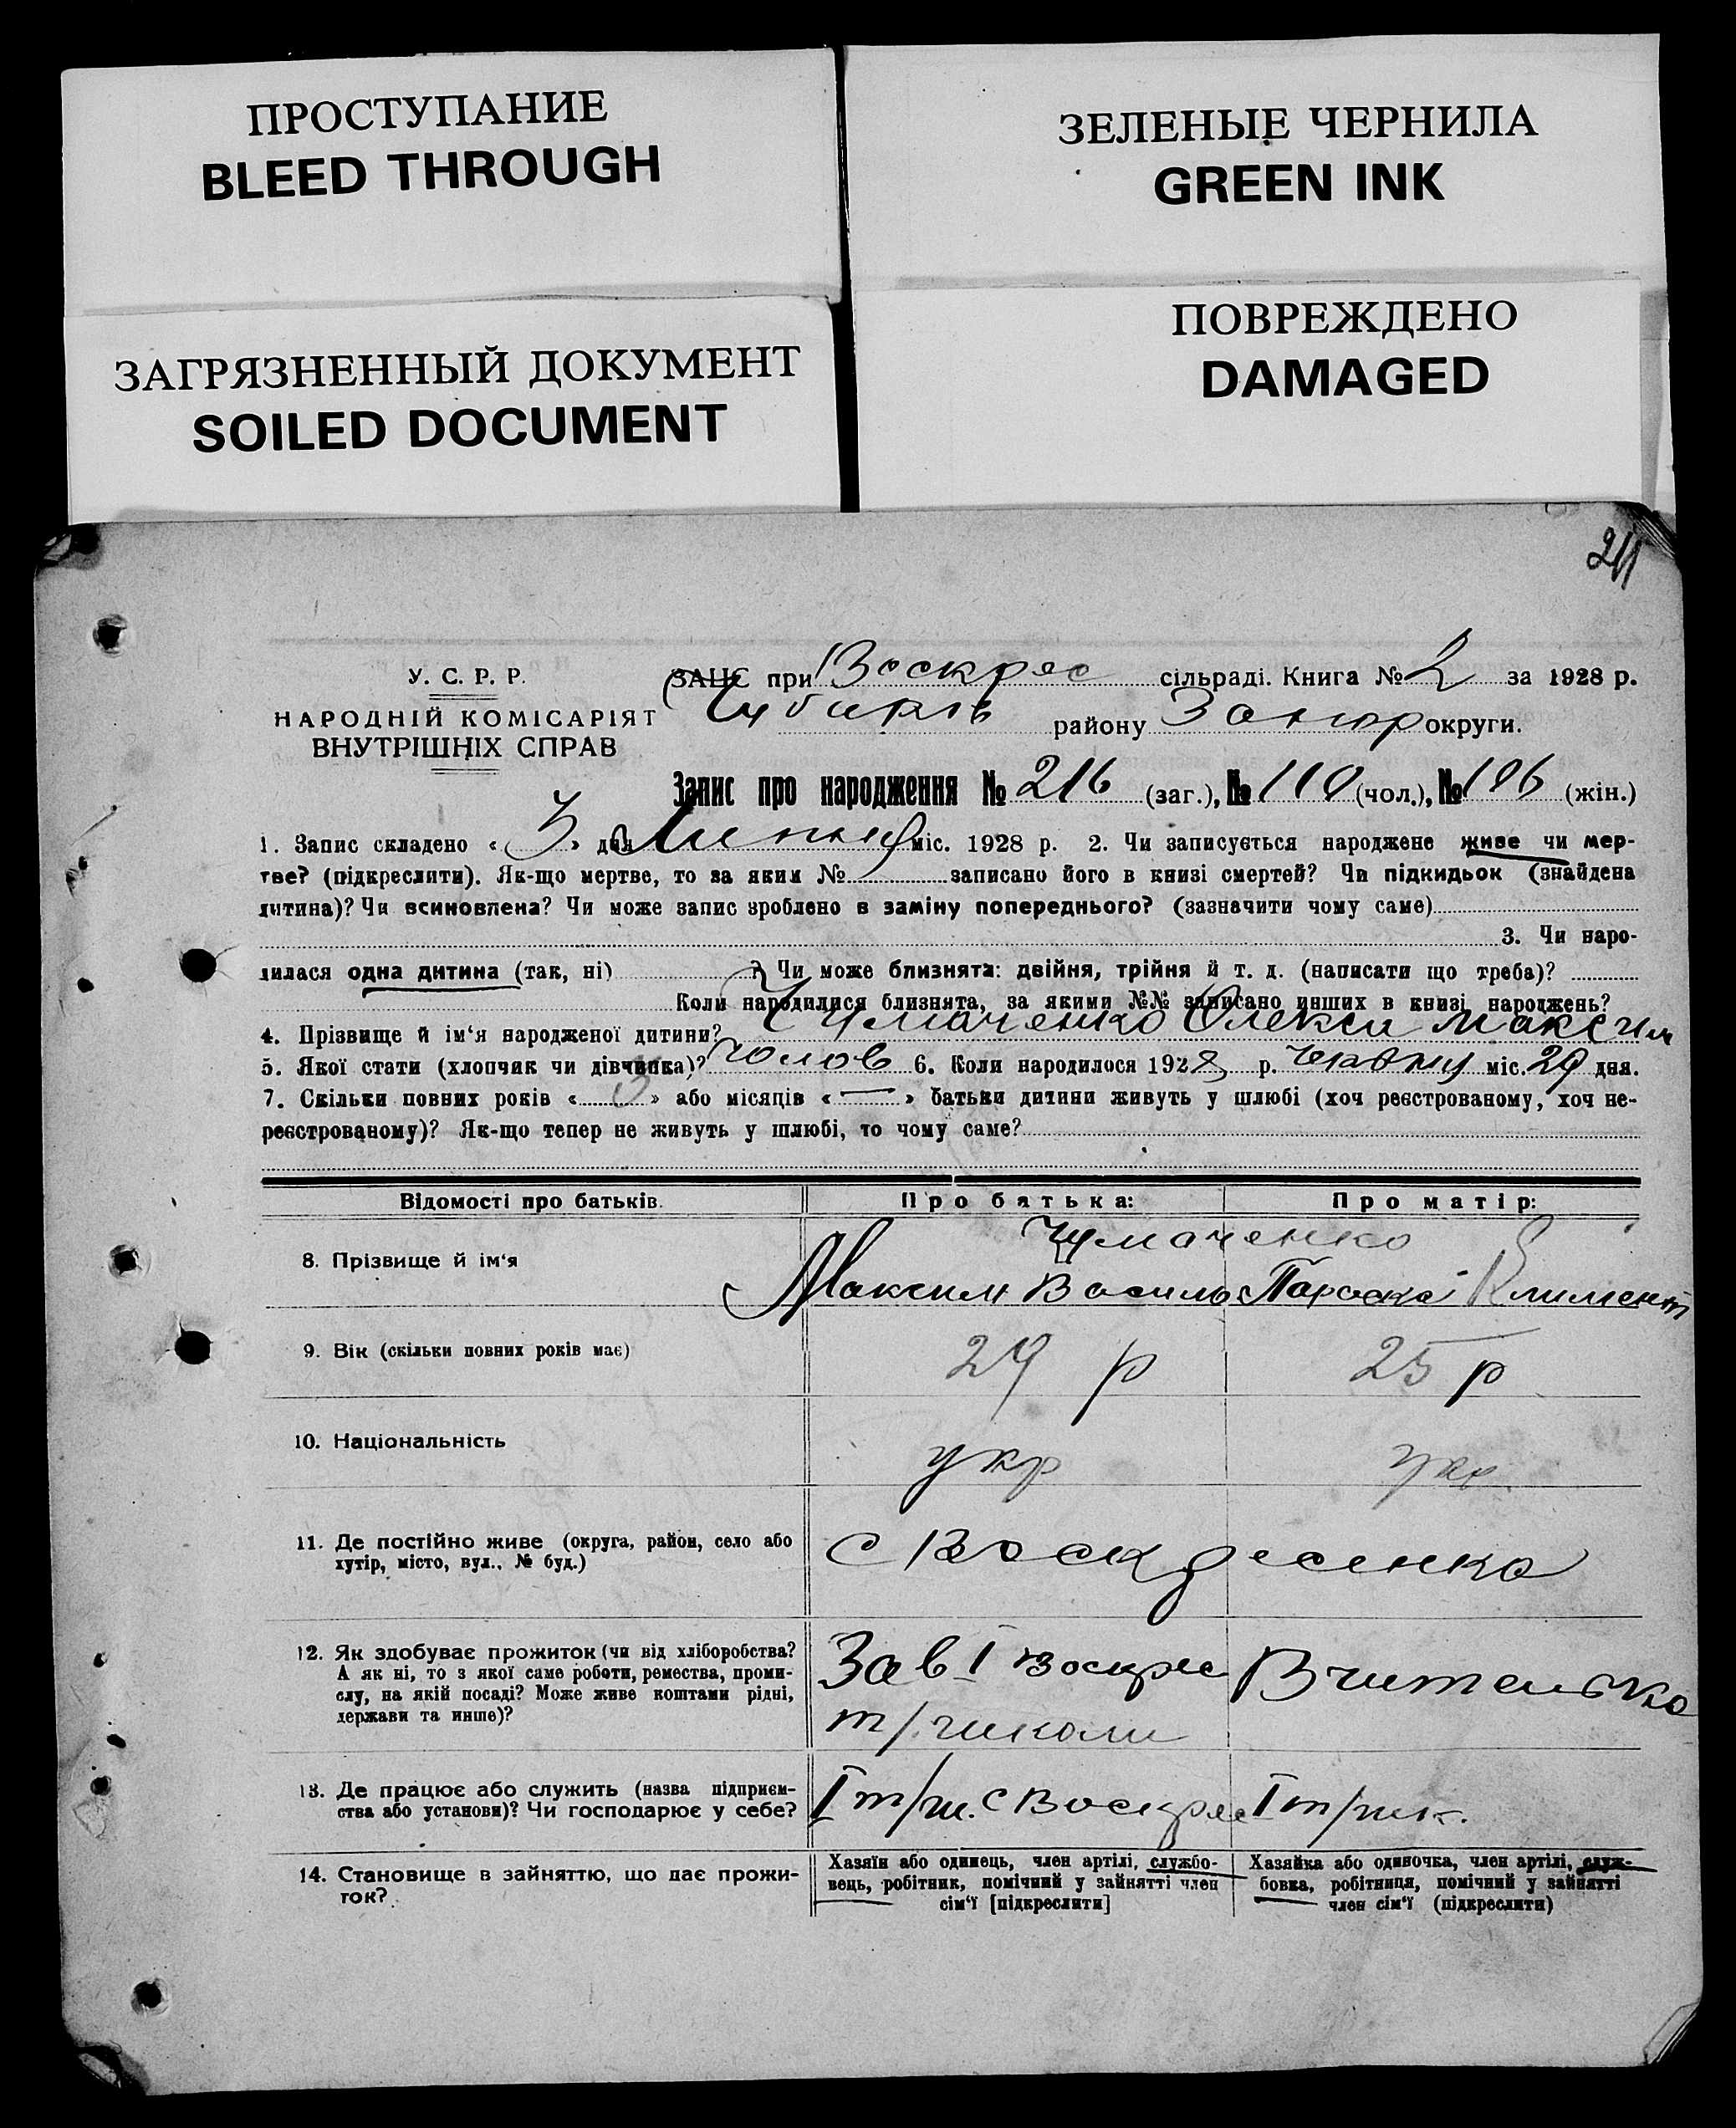 ПРОСТУПАНИЕ
BLEED THROUGH
ЗЕЛЕНЫЕ ЧЕРНИЛА
GREEN INK
ЗАГРЯЗНЕННЫЙ ДОКУМЕНТ
SOILED DOCUMENT
ПОВРЕЖДЕНО
DAMAGED
У. С. Р. Р.
НАРОДНІЙ КОМІСАРІЯТ
ВНУТРІШНІХ СПРАВ
ЗАЦС при Воскрес сільраді. Книга № 2 за 1928 р.
району Запор округи.
Запис про народження № 216 (заг.), № 110 (чол.), № 106 (жін.)
1. Запис складено « » дня Липня міс. 1928 р. 2. Чи записується народжене живе чи мер-
тве? (підкреслити). Як-що мертве, то за яким № записано його в книзі смертей? Чи підкидьок (знайдена
дитина)? Чи всиновлена? Чи може запис зроблено в заміну попереднього? (зазначити чому саме)
3. Чи наро-
дилася одна дитина (так, ні) ? Чи може близнята: двійня, трійня й т. д. (написати що треба)?
Коли народилися близнята, за якими №№ записано инших в книзі народжень?
4. Прізвище й ім‘я народженої дитини? Чумаченко Олекси Максим
5. Якої стати (хлопчик чи дівчинка)? Чолов 6. Коли народилося 1928 р. Червня міс. 29 дня.
7. Скільки повних років « 3 » або місяців « — » батьки дитини живуть у шлюбі (хоч реєстрованому, хоч не-
реєстрованому)? Як-що тепер не живуть у шлюбі, то чому саме?
Відомості про батьків. Про батька: Про матір:
Чумаченко
8. Прізвище й ім‘я Максим Василь Параска Климент
9. Вік (скільки повних років має) 29 р 25 р
10. Національність укр укр
11. Де постійно живе (округа, район, село або
хутір, місто, вул., № буд.)
с Воскресенка
12. Як здобуває прожиток (чи від хліборобства?
А як ні, то з якої саме роботи, ремества, проми-
слу, на якій посаді? Може живе коштами рідні,
держави та инше)?
Зав І Воскрес
т/школи
Вчителька
13. Де працює або служить (назва підприєм-
ства або установи)? Чи господарює у себе?
І т/ш. с Воскрес І т/шк.
14. Становище в зайняттю, що дає прожи-
ток?
Хазяїн або одинець, член артілі, службо-
вець, робітник, помічний у зайнятті член
сім‘ї [підкреслити]
Хазяйка або одиночка, член артілі, служ-
бовка, робітниця, помічний у зайнятті
член сім‘ї (підкреслити)